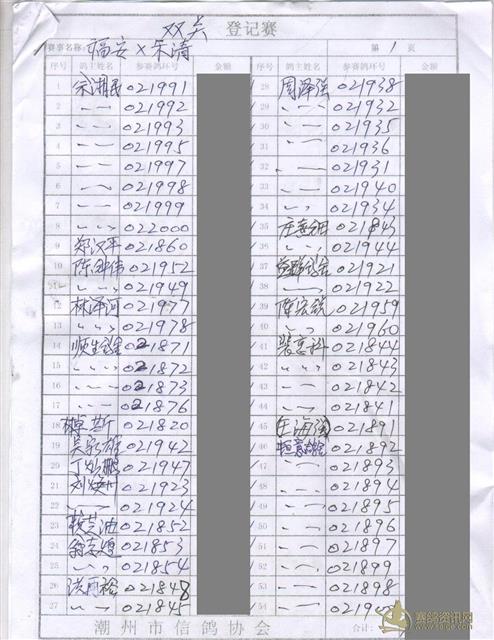 双关 登记赛
赛事名称: 福安×乐清 第1页
序号 鸽主姓名 参赛鸽环号 金额 序号 鸽主姓名 参赛鸽环号 金额
1 021991 28 周泽强 021938
2 〃 021992 29 〃 021932
3 〃 021993 30 〃 021935
4 〃 021995 31 〃 021936
5 〃 021997 32 〃 021931
6 〃 021998 33 〃 021940
7 〃 021999 34 〃 021934
8 〃 022000 35 021843
9 郑汉平 021860 36 〃 021944
10 陈 伟 021952 37 021921
〃 021949 38 〃 021922
12 林泽河 021977 39 陈宏 021959
13 〃 021978 40 〃 021960
14 顺生 021871 41 021844
15 〃 021872 42 〃 021843
16 〃 021873 43 〃 021842
17 〃 021876 44 〃 021841
18 021820 45 庄海强 021891
19 吴 雄 021942 46 021892
20 丁 鹏 021947 47 〃 021893
21 021923 48 〃 021894
22 〃 021924 49 〃 021895
23 021852 50 〃 021896
24 021853 51 〃 021897
25 〃 021854 52 〃 021899
26 洪 021848 53 〃 021898
27 〃 021845 54 〃
潮州市信鸽协会 合计:
赛鸽资讯网